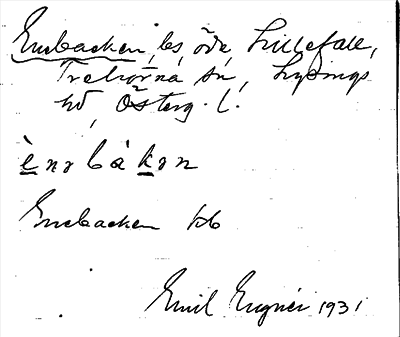 Enebacken, ls, öde, Lillefall,
Trehörna sn, Lysings
hd, Österg. l.
è n ə b à k ə n
Enebacken kb
Emil Engnér 1931